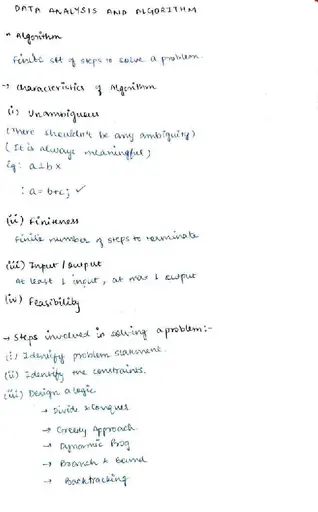 DATA ANALYSIS AND ALGORITHM
" Algorithm
Finite set of steps to solve a problem.
→ Characteristics of Algorithm
(i) Unambiguous
(There shouldn't be any ambiguity)
(It is always meaningful)
Eg: a⊥b ×
: a=b+c; ✓
(ii) Finiteness
Finite number of steps to terminate
(iii) Input / Output
At least 1 input, at max 1 output
(iv) Feasibility
→ Steps involved in solving a problem:-
(i) Identify problem statment.
(ii) Identify the constraints.
(iii) Design a logic
→ Divide & Conquer
→ Greedy Approach
→ Dynamic Prog
→ Branch & Bound
→ Backtracking